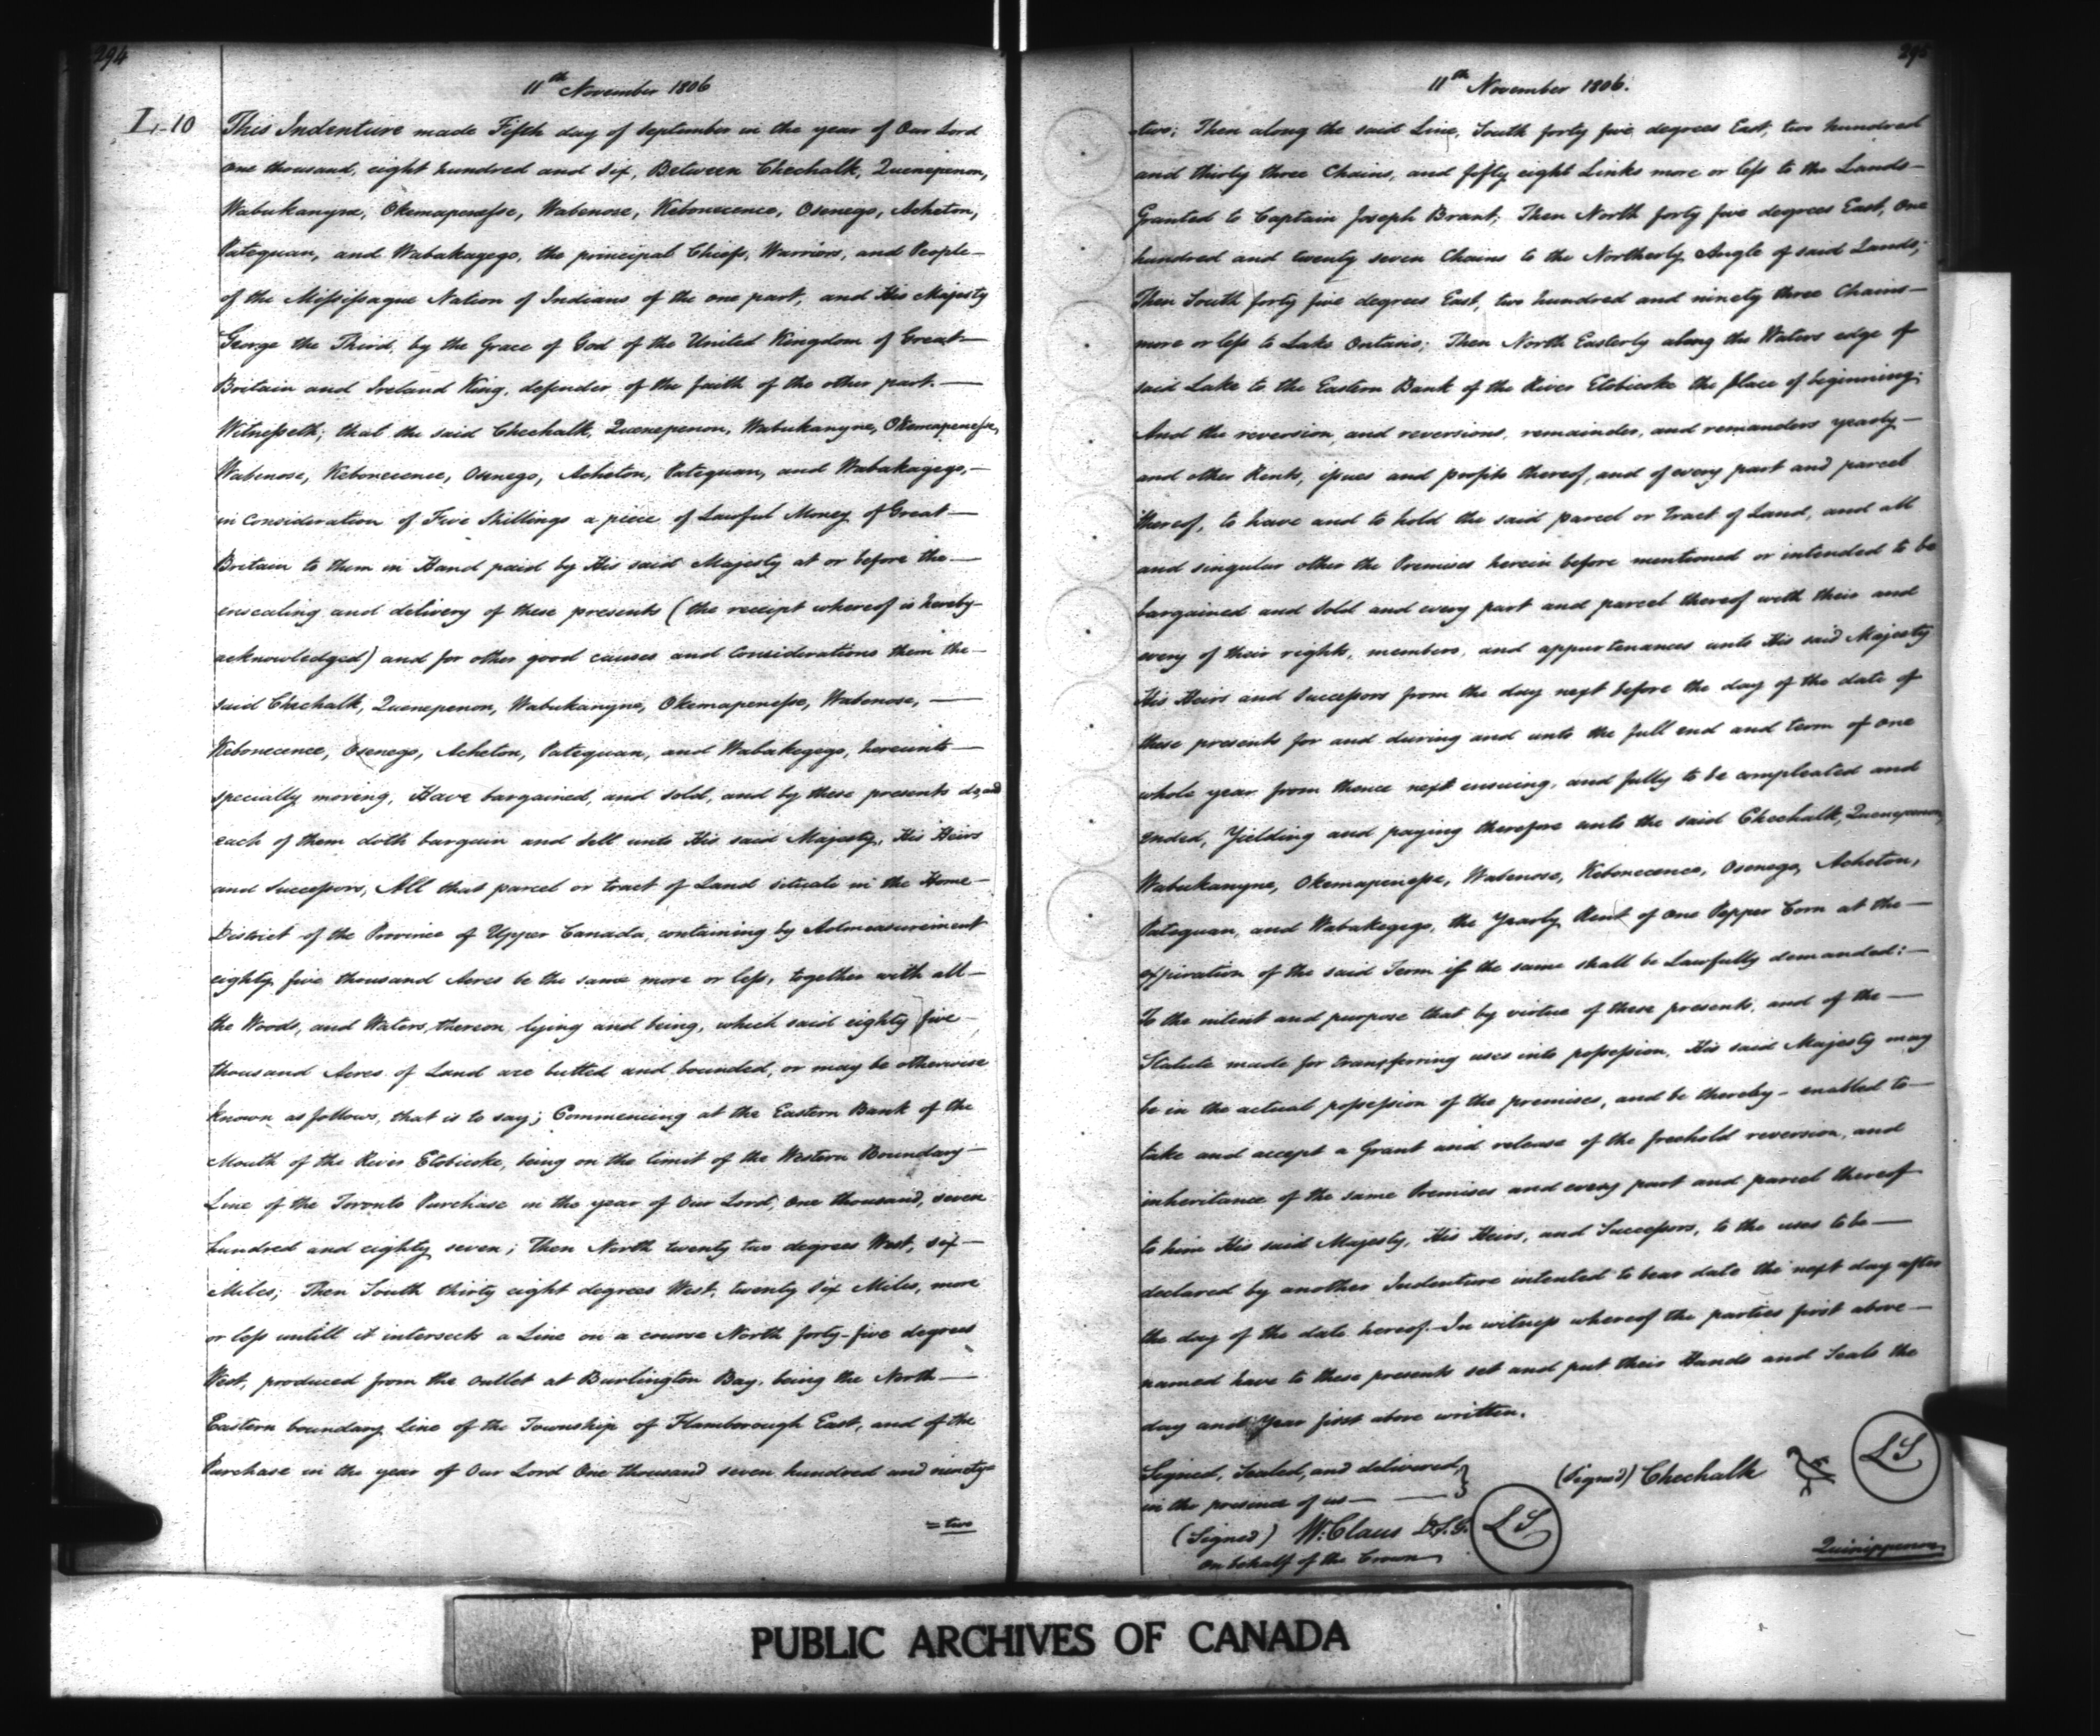 294
11th November 1806
I.-10
This Indenture made Fifth day of September in the year of Our Lord
One thousand, eight hundred and six, Between Chechalk, Quenepenon,
Wabukanyne, Okemapenesse, Wabenose, Kebonecence, Osenego, Acheton,
Patequan, and Wabakagego, the principal Chiefs, Warriors, and People—
of the Missisague Nation of Indians of the one part, and His Majesty
George the Third, by the Grace of God of the United Kingdom of Great—
Britain and Ireland King, defender of the faith of the other part.—
Witnesseth; that the said Chechalk, Quenepenon, Wabukanyne, Okemapenesse,
Wabenose, Kebonecence, Osenego, Acheton, Patequan, and Wabakagego,—
in Consideration of Five Shillings a piece of Lawful Money of Great—
Britain to them in Hand paid by His said Majesty at or before the—
ensealing and delivery of these presents (the receipt whereof is hereby—
acknowledged) and for other good causes and Considerations them the—
said Chechalk, Quenepenon, Wabukanyne, Okemapenesse, Wabenose,—
Kebonecence, Osenego, Acheton, Patequan, and Wabakegego, hereunto—
specially moving, Have bargained, and sold, and by these presents do, and
each of them doth bargain and sell unto His said Majesty, His Heirs
and Successors, All that parcel or tract of Land situate in the Home—
District of the Province of Upper Canada, containing by Admeasurement
eighty five thousand Acres be the same more or less, together with all—
the Woods, and Waters, thereon lying and being, which said eighty five—
thousand Acres of Land are butted and bounded, or may be otherwise
known as follows, that is to say; Commencing at the Eastern Bank of the
Mouth of the River Etobicoke, being on the limit of the Western Boundary—
Line of the Toronto Purchase in the year of Our Lord, One thousand, seven
hundred and eighty seven; Then North twenty two degrees West, six—
Miles; Then South thirty eight degrees West, twenty six Miles, more
or less untill it intersects a Line on a course North forty-five degrees
West, produced from the outlet at Burlington Bay, being the North—
Eastern boundary Line of the Township of Flamborough East, and of the
Purchase in the year of Our Lord One thousand seven hundred and ninety=
=two
295
11th November 1806.
two; Then along the said Line, South forty five degrees East, two hundred
and thirty three Chains, and fifty eight Links more or less to the Lands—
Granted to Captain Joseph Brant; Then North forty five degrees East, One
hundred and twenty seven Chains to the Northerly Angle of said Lands;
Then South forty five degrees East, two hundred and ninety three Chains—
more or less to Lake Ontario; Then North Easterly along the Waters edge of
said Lake to the Eastern Bank of the River Etobicoke the place of beginning;
And the reversion, and reversions, remainder, and remanders yearly—
and other Rents, issues and profits thereof, and of every part and parcel
thereof, to have and to hold the said parcel or Tract of Land, and all
and singular other the Premises herein before mentioned or intended to be
bargained and sold and every part and parcel thereof with their and
every of their rights, members, and appurtenances unto His said Majesty
His Heirs and Successors from the day next before the day of the date of
these presents for and during and unto the full end and term of one
whole year from thence next ensuing, and fully to be compleated and
ended, Yielding and paying therefore unto the said Chechalk, Quenepenon,
Wabukanyne, Okemapenesse, Wabenose, Kebonecence, Osenego, Acheton,
Patequan, and Wabakegego, the Yearly Rent of One Pepper Corn at the—
expiration of the said Term if the same shall be Lawfully demanded:—
To the intent and purpose that by virtue of these presents, and of the—
Statute made for transferring uses into possession, His said Majesty may
be in the actual possession of the premises, and be thereby - enabled to—
take and accept a Grant and release of the freehold reversion, and
inheritance of the same Premises and every part and parcel thereof
to him His said Majesty, His Heirs, and Successors, to the uses to be—
declared by another Indenture intented to bear date the next day after
the day of the date hereof.— In witness whereof the parties first above—
named have to these presents set and put their Hands and Seals the
day and Year first above written.
Signed, Sealed, and delivered,
in the presence of us—
(Signed) Chechalk
LS
(Signed) W. Claus D.S.G.
LS
on behalf of the Crown
Quinippenon
PUBLIC ARCHIVES OF CANADA